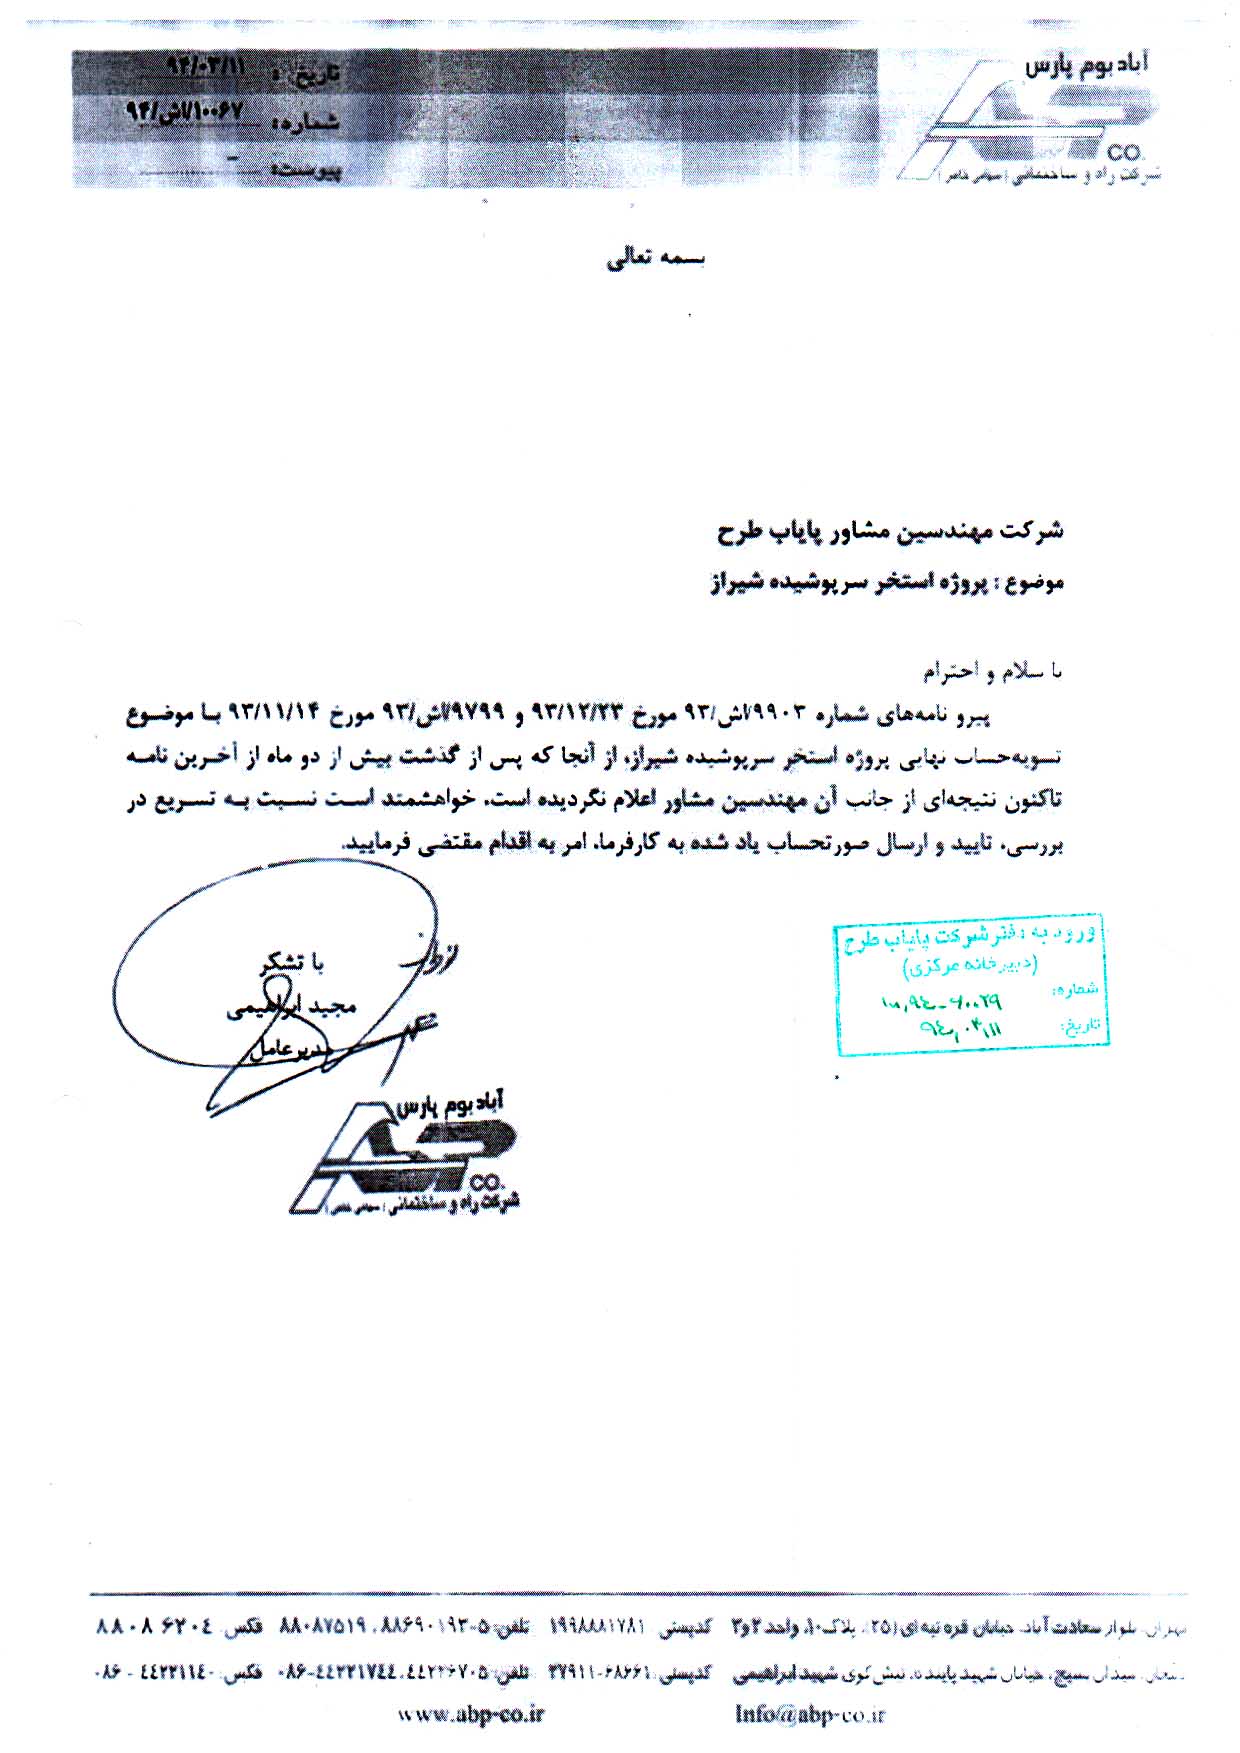 آباد بوم پارس
CO.
شرکت راه و ساختمانی (سهامی خاص)
تاریخ : ۹۴/۰۳/۱۱
شماره: ۱۰۰۶۷/اش/۹۴
پیوست: -
بسمه تعالی
شرکت مهندسین مشاور پایاب طرح
موضوع : پروژه استخر سرپوشیده شیراز
با سلام و احترام
پیرو نامه‌های شماره ۹۹۰۳/اش/۹۳ مورخ ۹۳/۱۲/۲۳ و ۹۷۹۹/اش/۹۳ مورخ ۹۳/۱۱/۱۴ با موضوع
تسویه‌حساب نهایی پروژه استخر سرپوشیده شیراز، از آنجا که پس از گذشت بیش از دو ماه از آخرین نامه
تاکنون نتیجه‌ای از جانب آن مهندسین مشاور اعلام نگردیده است، خواهشمند است نسبت به تسریع در
بررسی، تایید و ارسال صورتحساب یاد شده به کارفرما، امر به اقدام مقتضی فرمایید.
با تشکر
مجید ابراهیمی
مدیرعامل
آباد بوم پارس
CO.
شرکت راه و ساختمانی (سهامی خاص)
ورود به : دفتر شرکت پایاب طرح
(دبیرخانه مرکزی)
شماره:
تاریخ: ۹۴,۰۳,۱۱
تهران، بلوار سعادت آباد، خیابان قره تپه ای (۲۵)، پلاک۱۰، واحد ۲و۳ کدپستی: ۱۹۹۸۸۸۱۷۸۱ تلفن: ۵-۸۸۶۹۰۱۹۳ ، ۸۸۰۸۷۵۱۹ فکس: ۸۸۰۸۶۲۰۴
میدان بسیج، خیابان شهید پاینده، نبش کوی شهید ابراهیمی کدپستی: ۶۸۶۶۱-۳۷۹۱۱ تلفن: ۴۴۲۲۶۷۰۵، ۴۴۲۲۱۷۴۴-۰۸۶ فکس: ۴۴۲۲۱۱۴۰ - ۰۸۶
www.abp-co.ir Info@abp-co.ir